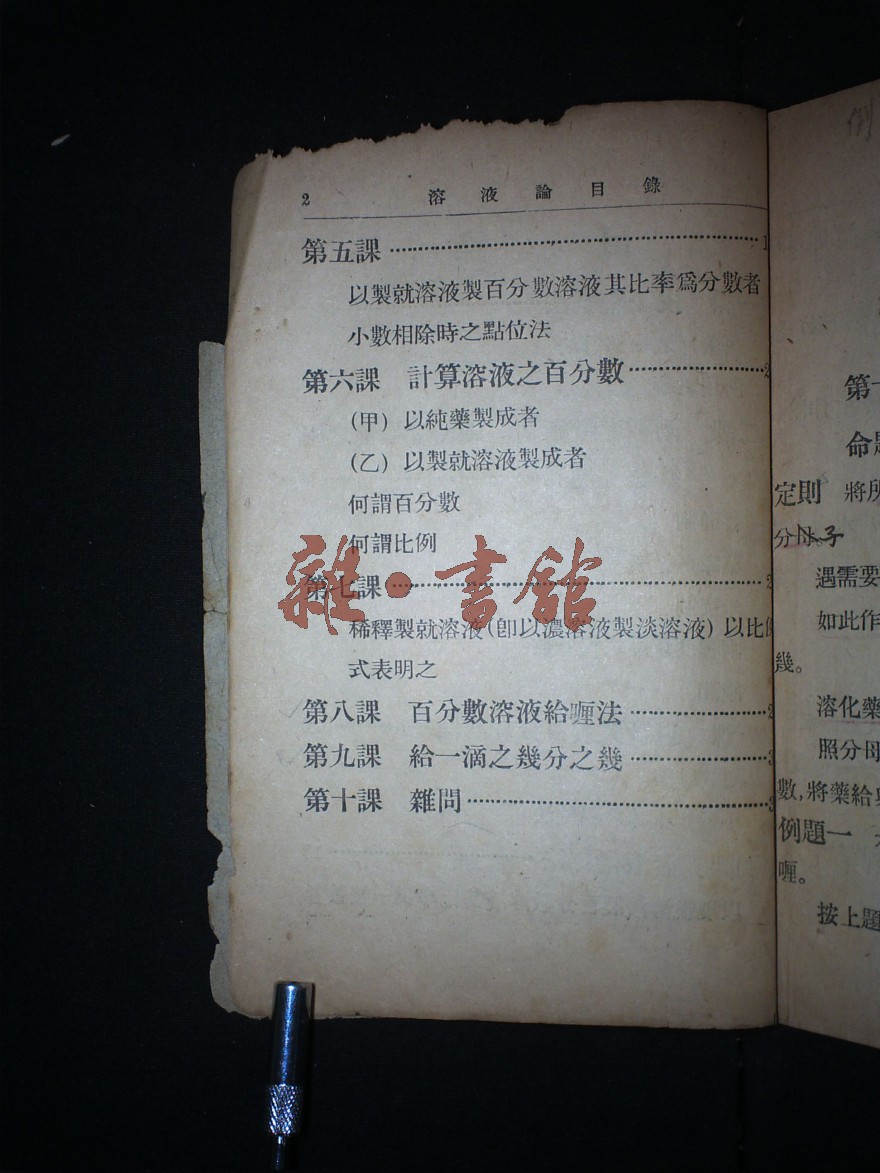 2 溶液論目錄
第五課……1
以製就溶液製百分數溶液其比率爲分數者
小數相除時之點位法
第六課 計算溶液之百分數……2
(甲) 以純藥製成者
(乙) 以製就溶液製成者
何謂百分數
何謂比例
第七課……2
稀釋製就溶液(卽以濃溶液製淡溶液) 以比例
式表明之
第八課 百分數溶液給喱法……2
第九課 給一滴之幾分之幾……3
第十課 雜問……3
雜·書館
例
第
命
定則 將所
分母子
遇需要
如此作
幾。
溶化藥
照分母
數,將藥給
例題一
喱。
按上題